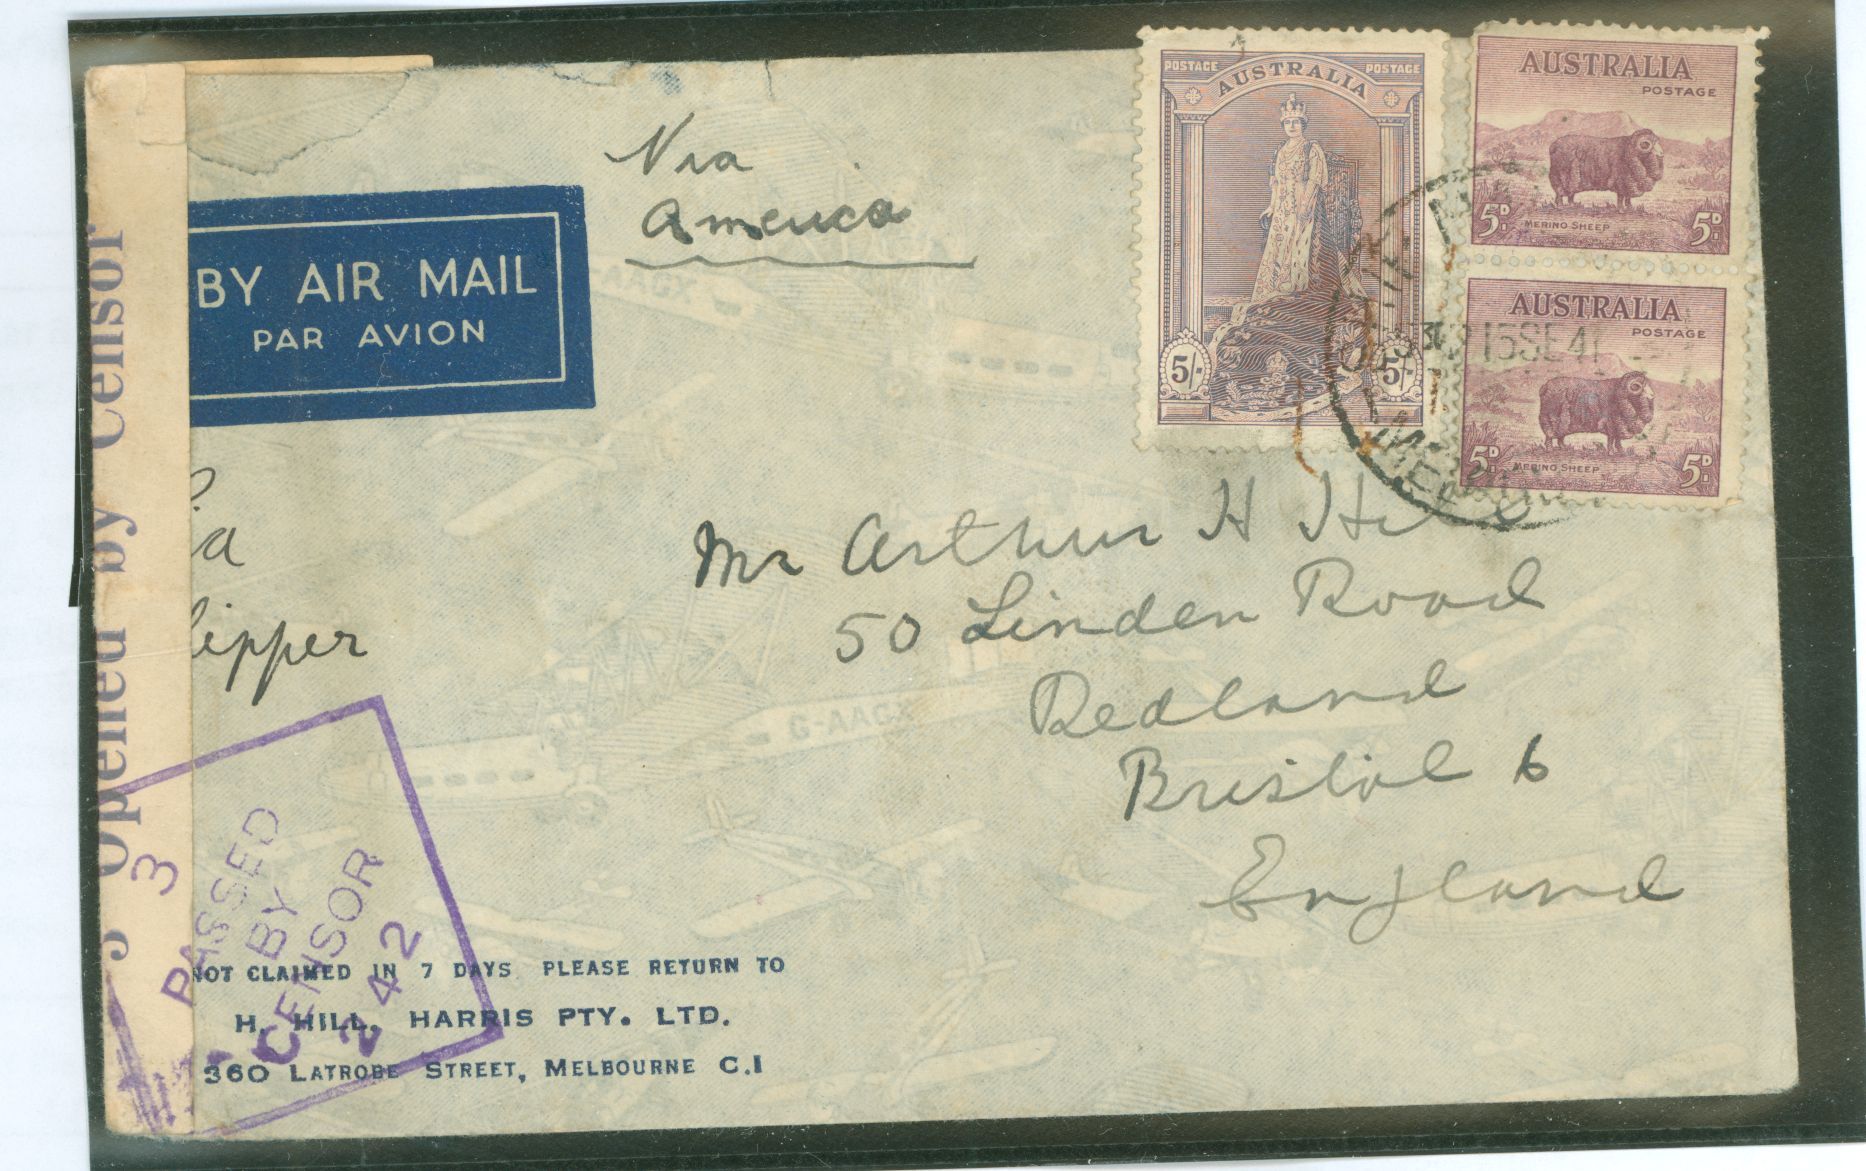 POSTAGE AUSTRALIA POSTAGE
5/- 5/-
AUSTRALIA
POSTAGE
5D MERINO SHEEP 5D
AUSTRALIA
POSTAGE
5D MERINO SHEEP 5D
15SE41
Via
America
BY AIR MAIL
PAR AVION
Opened by Censor
ia
lipper
Mr Arthur H Hill
50 Linden Road
Redland
Bristol 6
England
G-AAGX
3 PASSED
BY
CENSOR
242
NOT CLAIMED IN 7 DAYS PLEASE RETURN TO
H. HILL, HARRIS PTY. LTD.
360 LATROBE STREET, MELBOURNE C.1